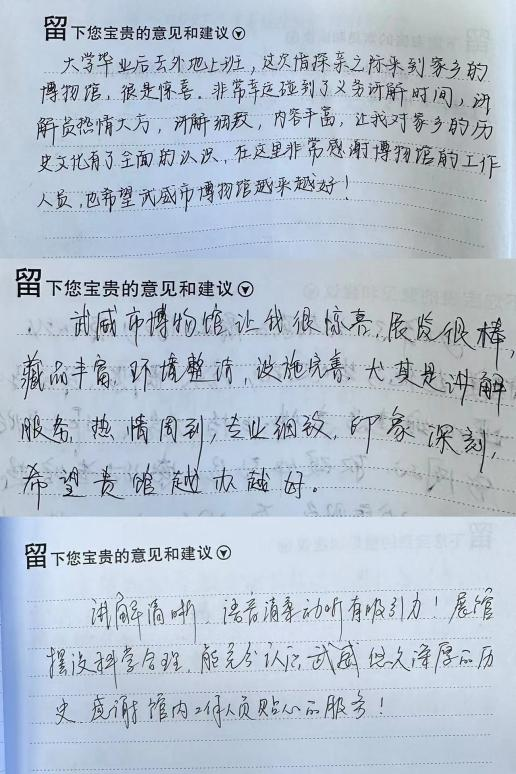 留下您宝贵的意见和建议
大学毕业后去外地上班，这次借探亲之际来到家乡的
博物馆，很是惊喜。非常幸运碰到了义务讲解时间，讲
解员热情大方，讲解细致，内容丰富，让我对家乡的历
史文化有了全面的认识，在这里非常感谢博物馆的工作
人员，也希望武威市博物馆越来越好！
留下您宝贵的意见和建议
武威市博物馆让我很惊喜，展览很棒，
藏品丰富，环境整洁，设施完善，尤其是讲解
服务，热情周到，专业细致，印象深刻，
希望贵馆越办越好。
留下您宝贵的意见和建议
讲解清晰，语音清柔动听有吸引力！展馆
摆设科学合理，能充分认识武威悠久深厚的历
史，感谢馆内工作人员贴心的服务！